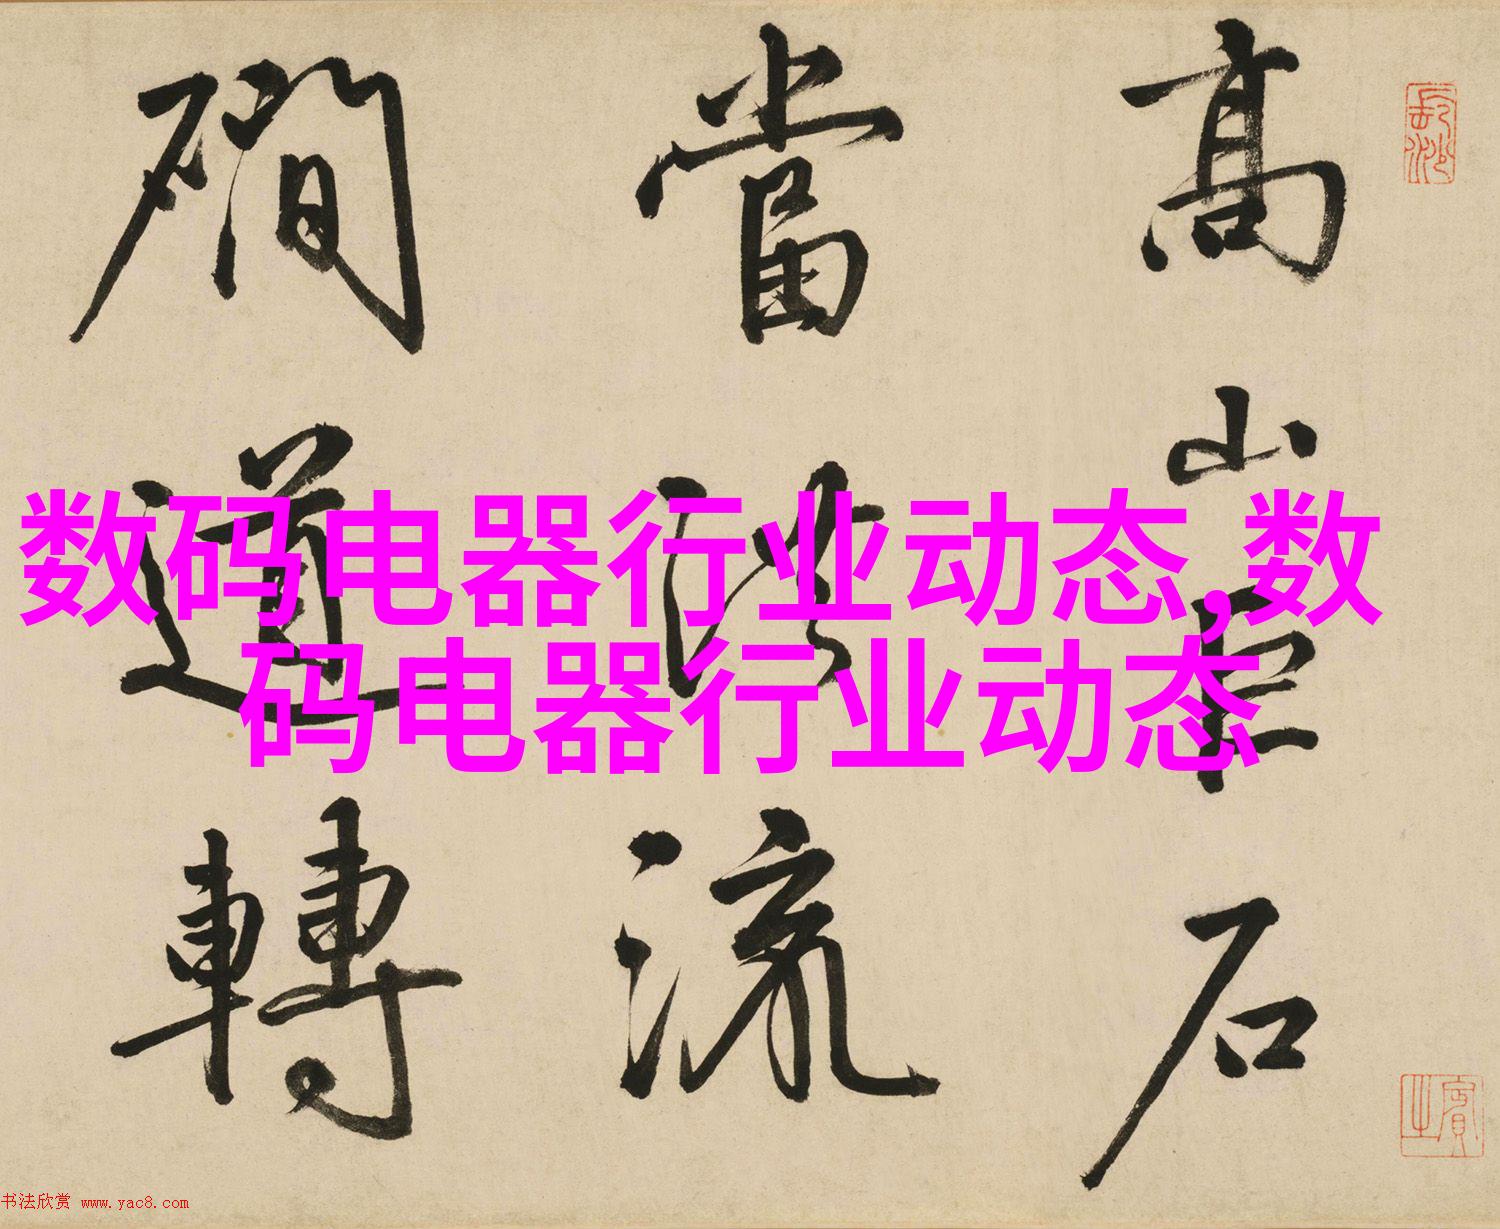 高山巨石
當洪流
磵道轉
数码电器行业动态,数
码电器行业动态
长沙
书法欣赏 www.yac8.com